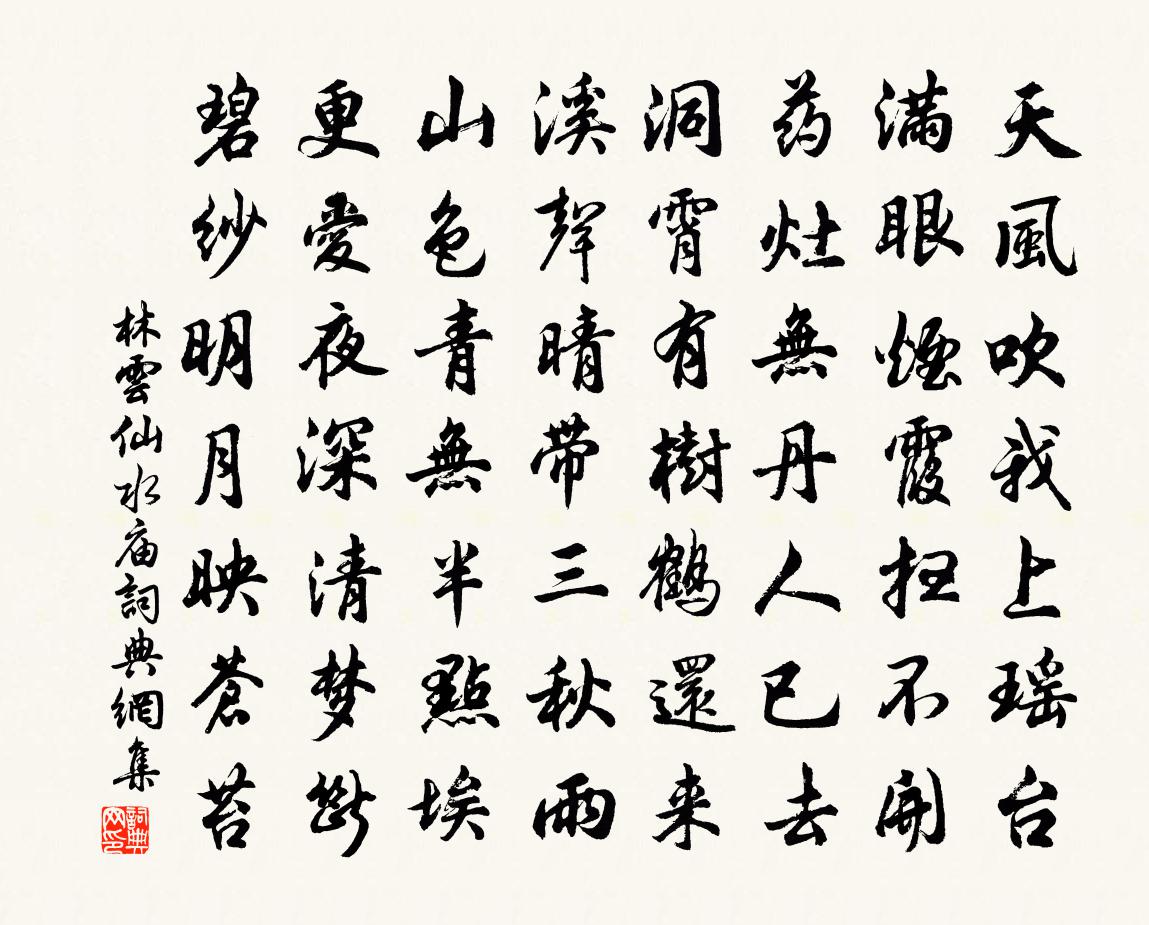 天風吹我上瑶台
满眼煙霞扫不開
药灶無丹人已去
洞霄有樹鶴還来
溪聲晴带三秋雨
山色青無半點埃
更愛夜深清梦斷
碧纱明月映蒼苔
林雲仙水庙詞典網集
詞典网印